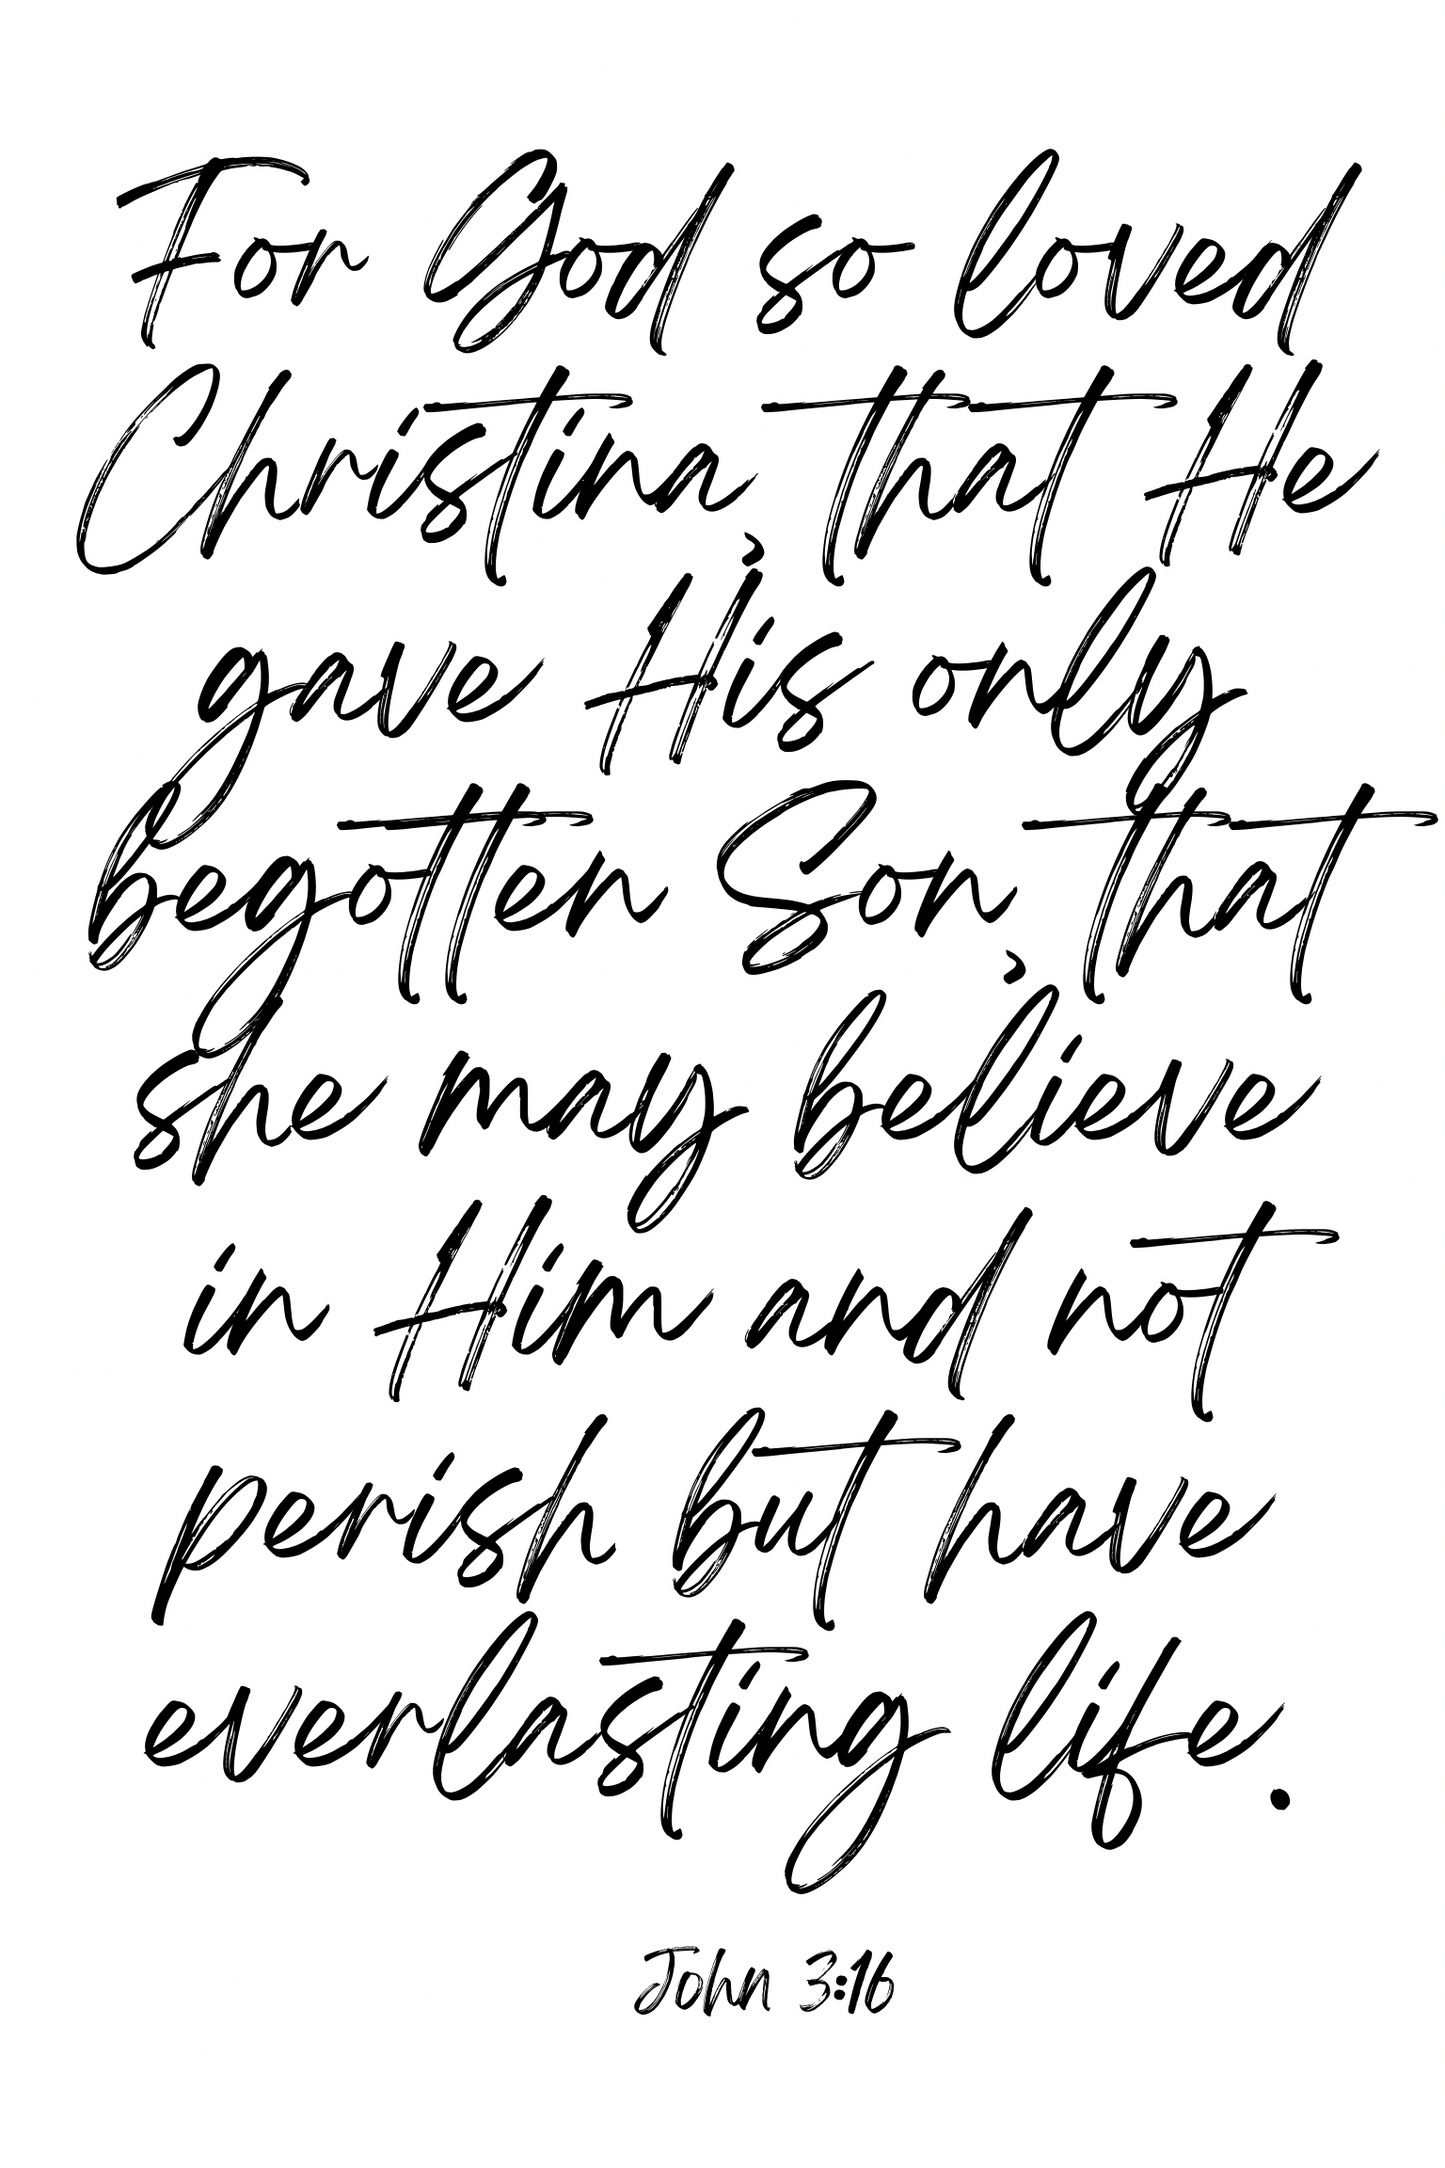 For God so loved
Christina, that He
gave His only
begotten Son, that
she may believe
in Him and not
perish but have
everlasting life.
John 3:16